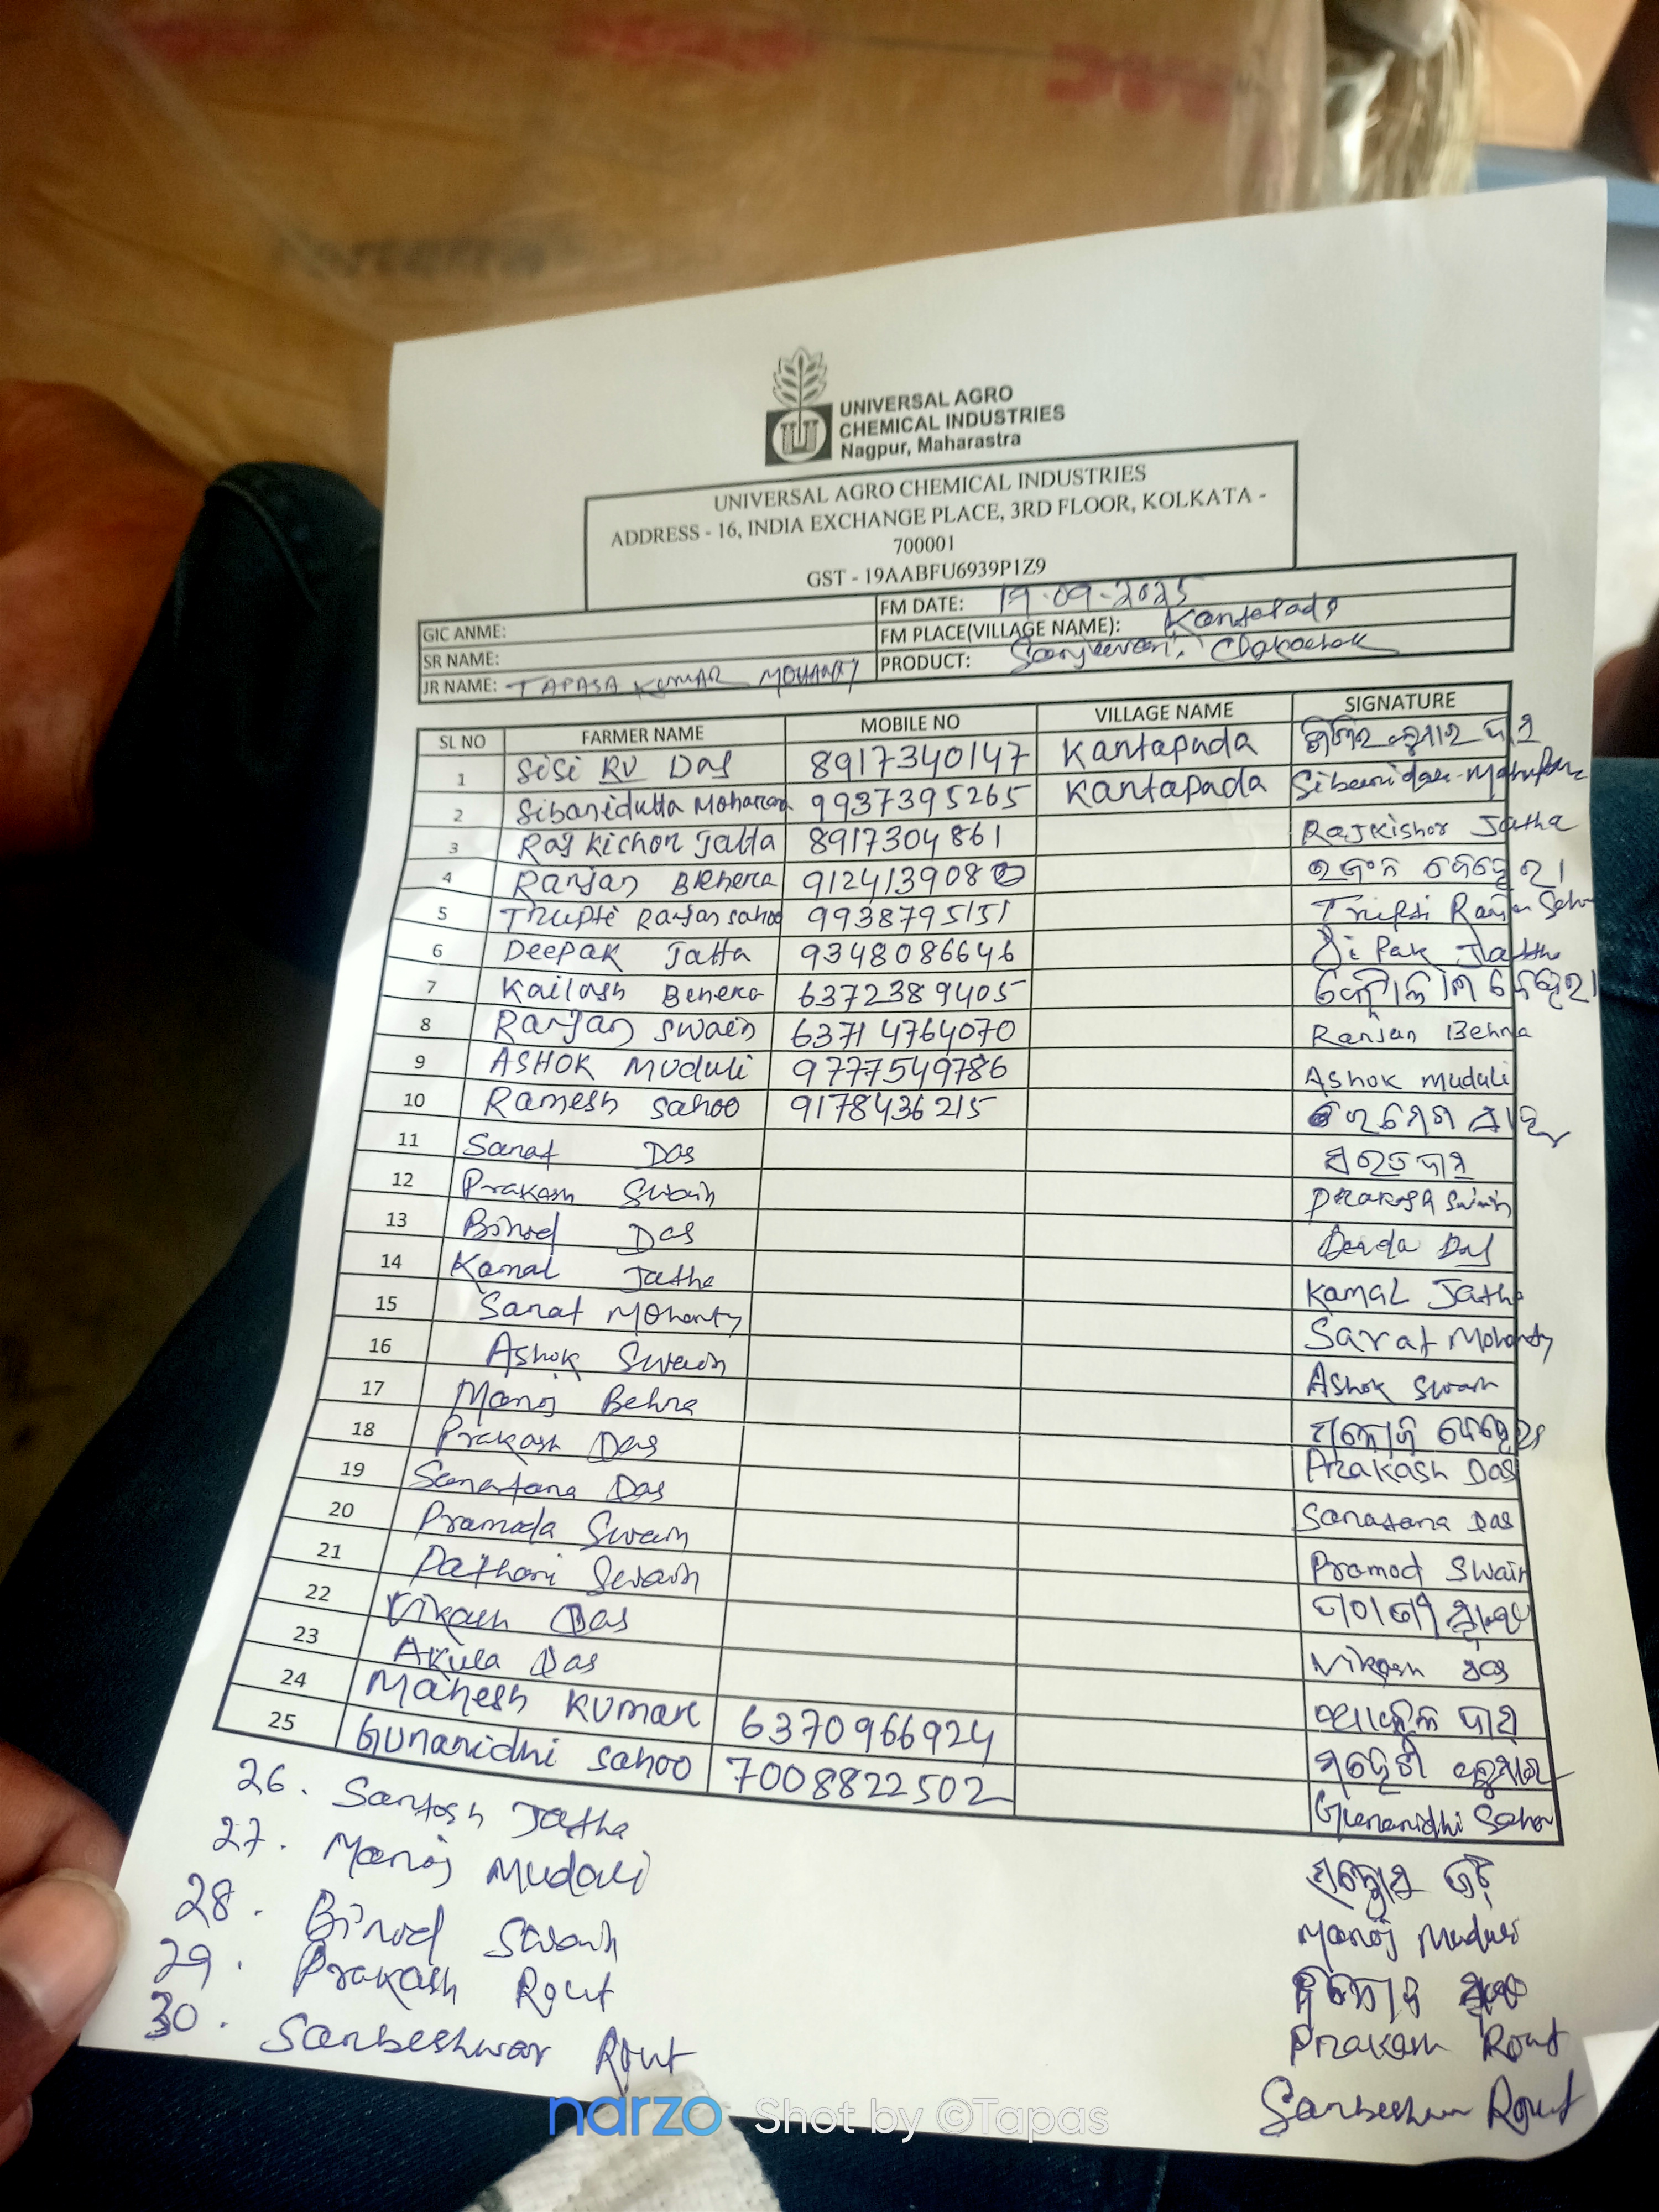 UNIVERSAL AGRO
CHEMICAL INDUSTRIES
Nagpur, Maharastra
UNIVERSAL AGRO CHEMICAL INDUSTRIES
ADDRESS - 16, INDIA EXCHANGE PLACE, 3RD FLOOR, KOLKATA -
700001
GST - 19AABFU6939P1Z9
GIC ANME: FM DATE: 19-09-2025
SR NAME: FM PLACE(VILLAGE NAME): Kantapada
JR NAME: TAPASA KUMAR MOHANTY PRODUCT:
SL NO FARMER NAME MOBILE NO VILLAGE NAME SIGNATURE
1 SiSi RU Das 8917340147 Kantapada
2 Sibanidutta 9937395265 Kantapada
3 Raj Kichor Jatta 8917304861 Rajkishor Jatha
4 Ranjan Behera 912413908 ରଞ୍ଜନ ବେହେରା
5 Trupti Ranjan sahoo 9938795151 Trupti Ranjan
6 Deepak Jatta 9348086646 Di Pak
7 Kailash Behera 6372389405
8 Ranjan Swain 63714764070 Ranjan Behra
9 ASHOK MUduli 9777549786 Ashok muduli
10 Ramesh sahoo 9178436215 ରମେଶ ସାହୁ
11 Sarat Das ଶରତ ଦାସ
12 Prakash Swain Prakash Swain
13 Binod Das Das
14 Kamal Jatha Kamal Jatha
15 Sarat Mohanty Sarat Mohanty
16 Ashok Swain Ashok Swain
17 Manoj Behra ମନୋଜ ବେହେରା
18 Prakash Das Prakash Das
19 Sanatana Das Sanatana Das
20 Pramoda Swain Pramod Swain
21 Pathani Swain
22 Vikash Das Vikash
23 Akula Das ଦାସ
24 Mahesh Kumar 6370966924
25 Gunanidhi sahoo 7008822502 Gunanidhi Sahoo
26. Santosh Jatha
27. Manoj Muduli Manoj Muduli
28. Binod Swain
29. Prakash Rout Prakash Rout
30. Sarbeshwar Rout Rout
narzo Shot by ©Tapas